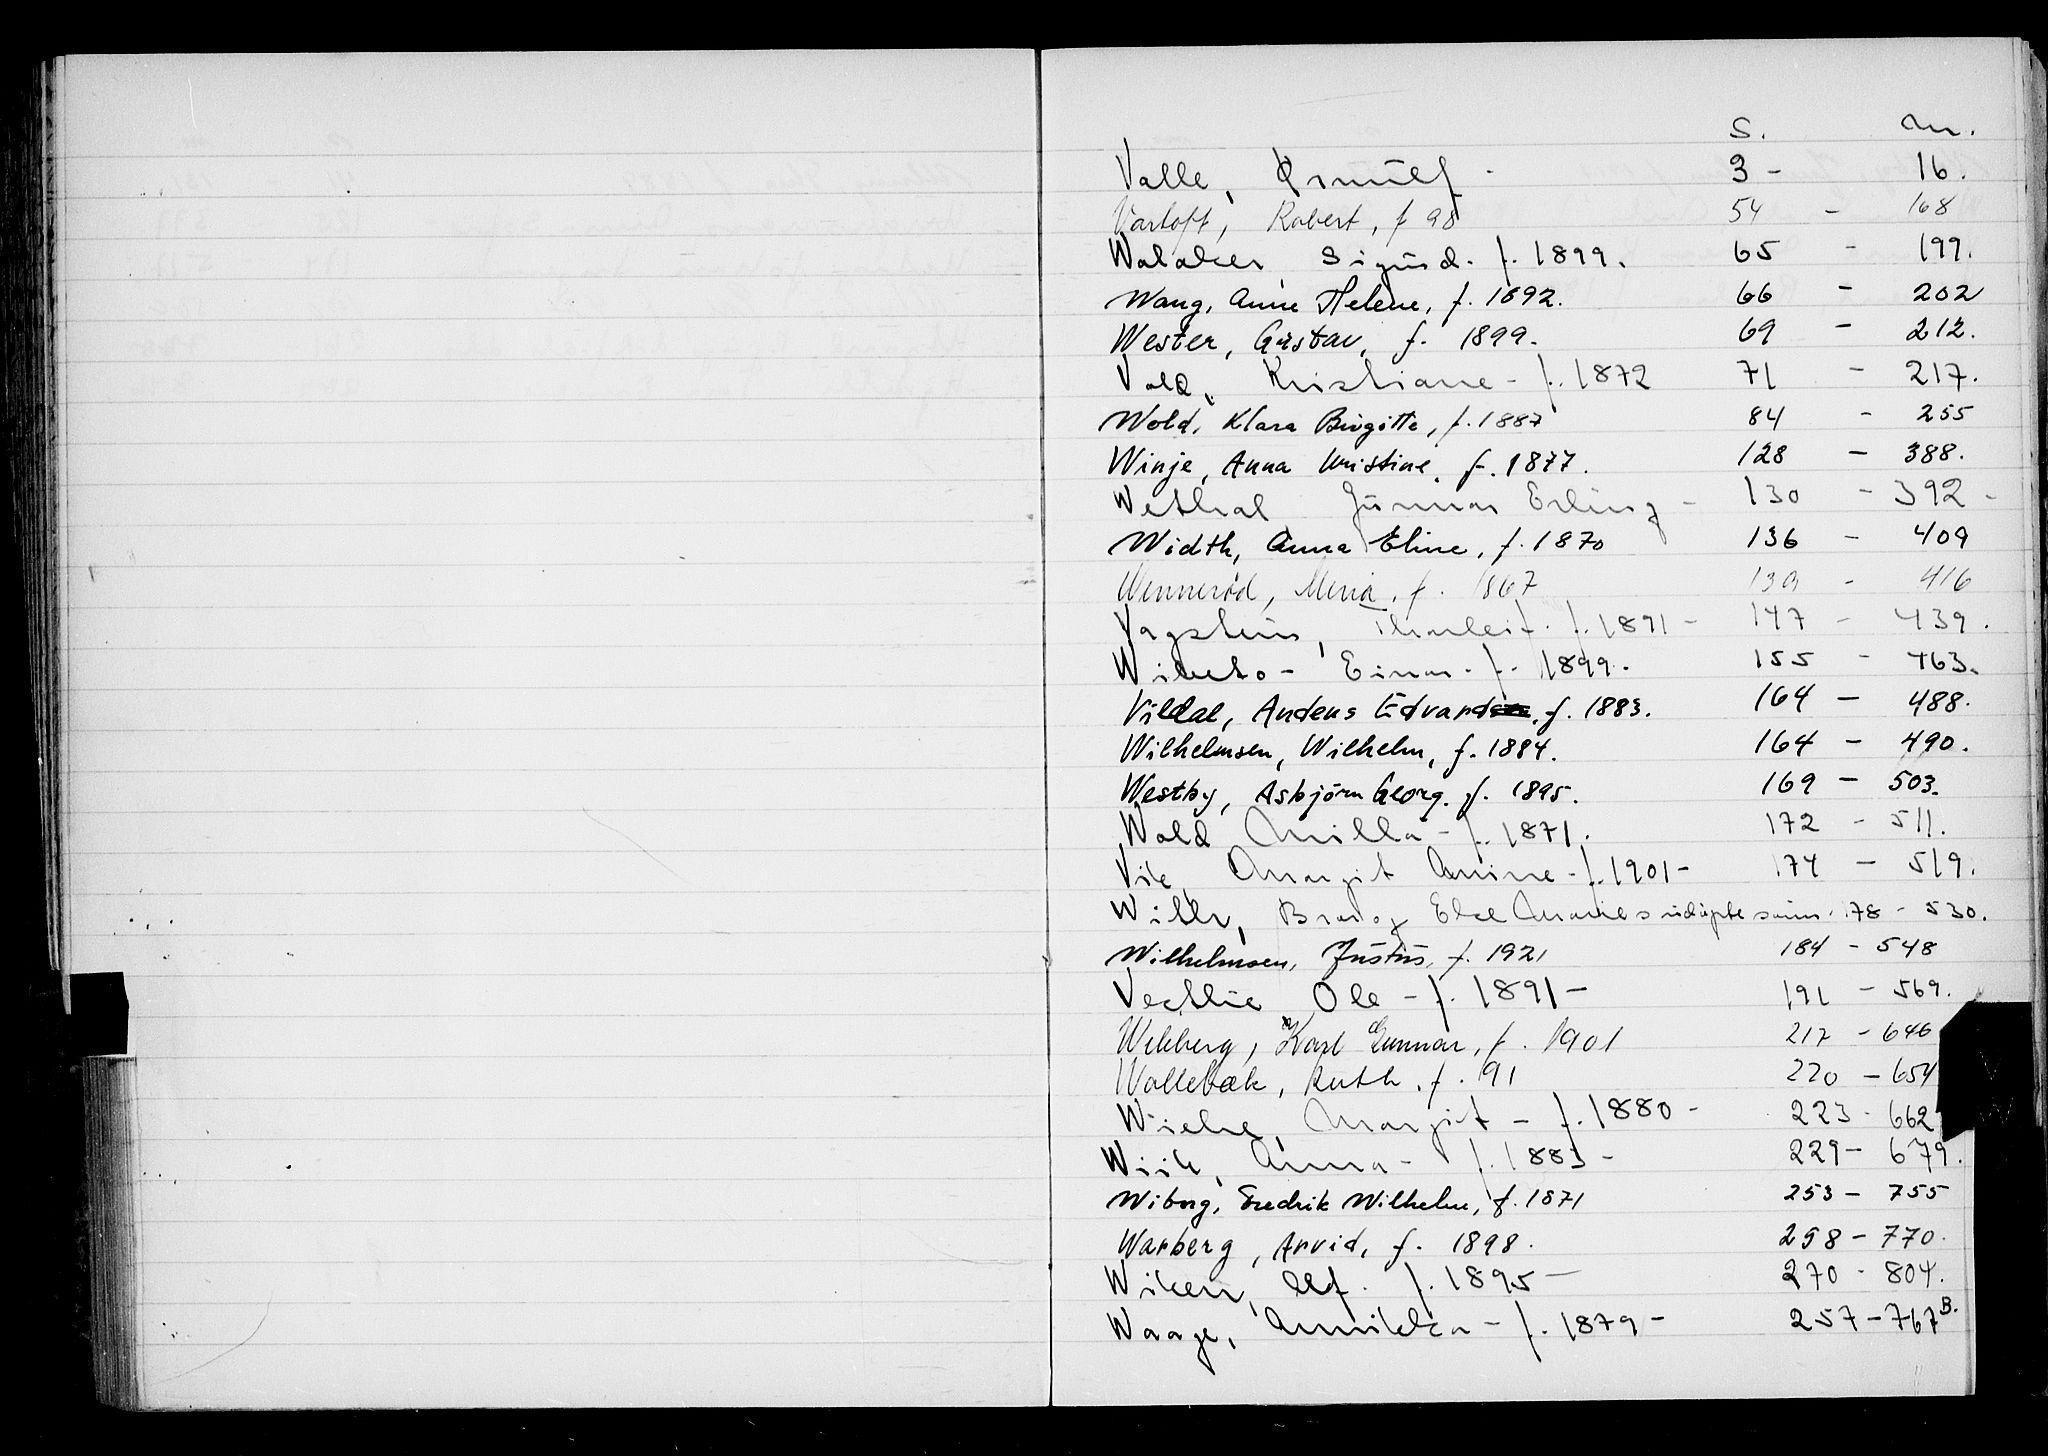 S. Nr.
Valle, 3 - 16.
Vartoft, Robert, f 98 54 - 168
Walaker, Sigurd. f. 1899. 65 - 199.
Wang, Anne Helene, f. 1892. 66 - 202
Wester, Gustav, f. 1899. 69 - 212.
Vold, Kristiane - f. 1872 71 - 217.
Wold, Klara Birgitte, f. 1887 84 - 255
Winje, Anna Kristine, f. 1877. 128 - 388.
Wethal Gunnar Erling - 130 - 392 -
Width, Anna Eline, f. 1870 136 - 409
Wennerød, f. 1867 139 - 416
Vagstein, Thorleif. f. 1891 - 147 - 439.
Einar. f. 1899. 155 - 463.
Vildal, Anders Edvard, f. 1883. 164 - 488.
Wilhelmsen, Wilhelm, f. 1884. 164 - 490.
Westby, Asbjörn Georg. f. 1895. 169 - 503.
Wold Milla - f. 1871. 172 - 511.
Vik, Margit Annine - f. 1901 - 174 - 519.
Else 178 - 530.
Wilhelmsen, Justus, f. 1921 184 - 548
Vestlie Ole - f. 1891 - 191 - 569.
Wekberg, Karl Gunnar, f. 1901 217 - 646
Wollebæk, Ruth, f. 91 220 - 654
Wiehe, Margit - f. 1880 - 223 - 662
Wiik, Anna - f. 1883 - 229 - 679.
Wiborg, Fredrik Wilhelm, f. 1871 253 - 755
Warberg, Arvid, f. 1898. 258 - 770.
Wiken, Ulf. f. 1895 - 270 - 804.
Waage, Annikka - f. 1879 - 257 - 767 B.